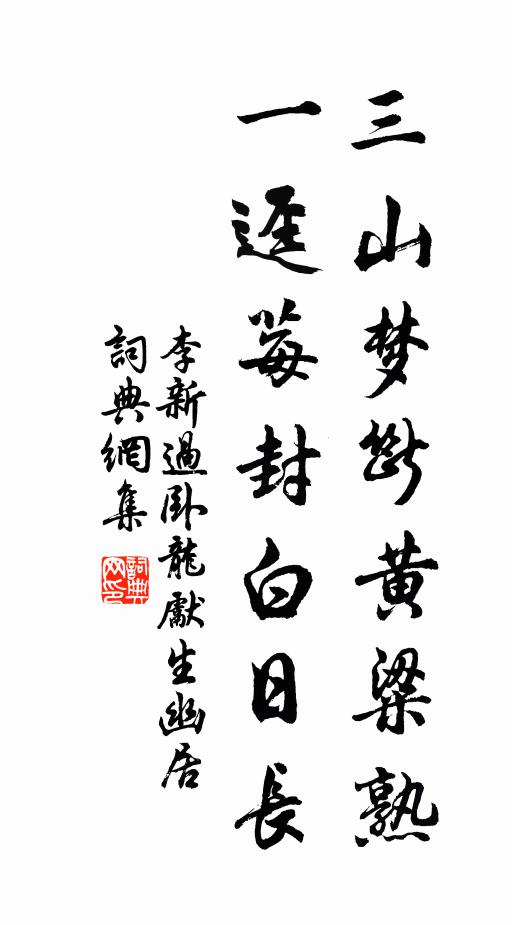 三山梦斷黄粱熟
一逕莓封白日長
李新過卧龍獻生幽居
詞典網集
詞典网印